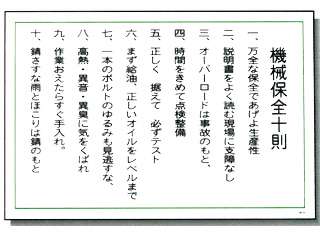 機械保全十則
一、万全な保全であげよ生産性
二、説明書をよく読む現場に支障なし
三、オーバーロードは事故のもと、
四、時間をきめて点検整備
五、正しく 据えて 必ずテスト
六、まず給油、正しいオイルをレベルまで
七、一本のボルトのゆるみも見逃すな、
八、高熱・異音・異臭に気をくばれ
九、作業おえたらすぐ手入れ。
十、錆さすな雨とほこりは錆のもと